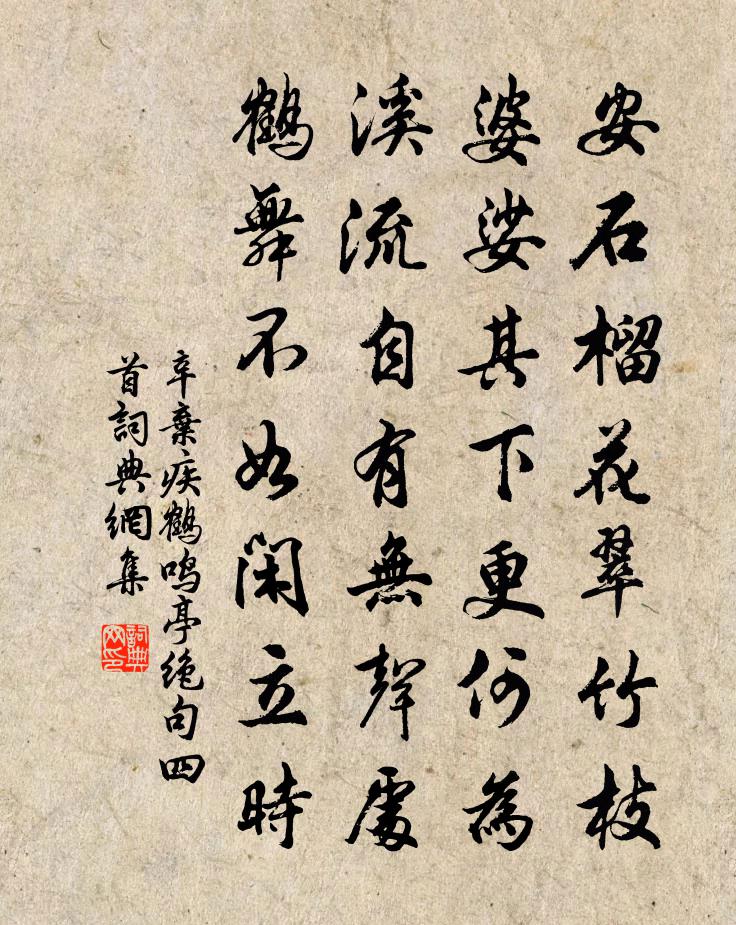 安石榴花翠竹枝
婆娑其下更何為
溪流自有無聲處
鶴舞不如閑立時
辛棄疾鶴鳴亭絶句四
首詞典網集
詞典
网印